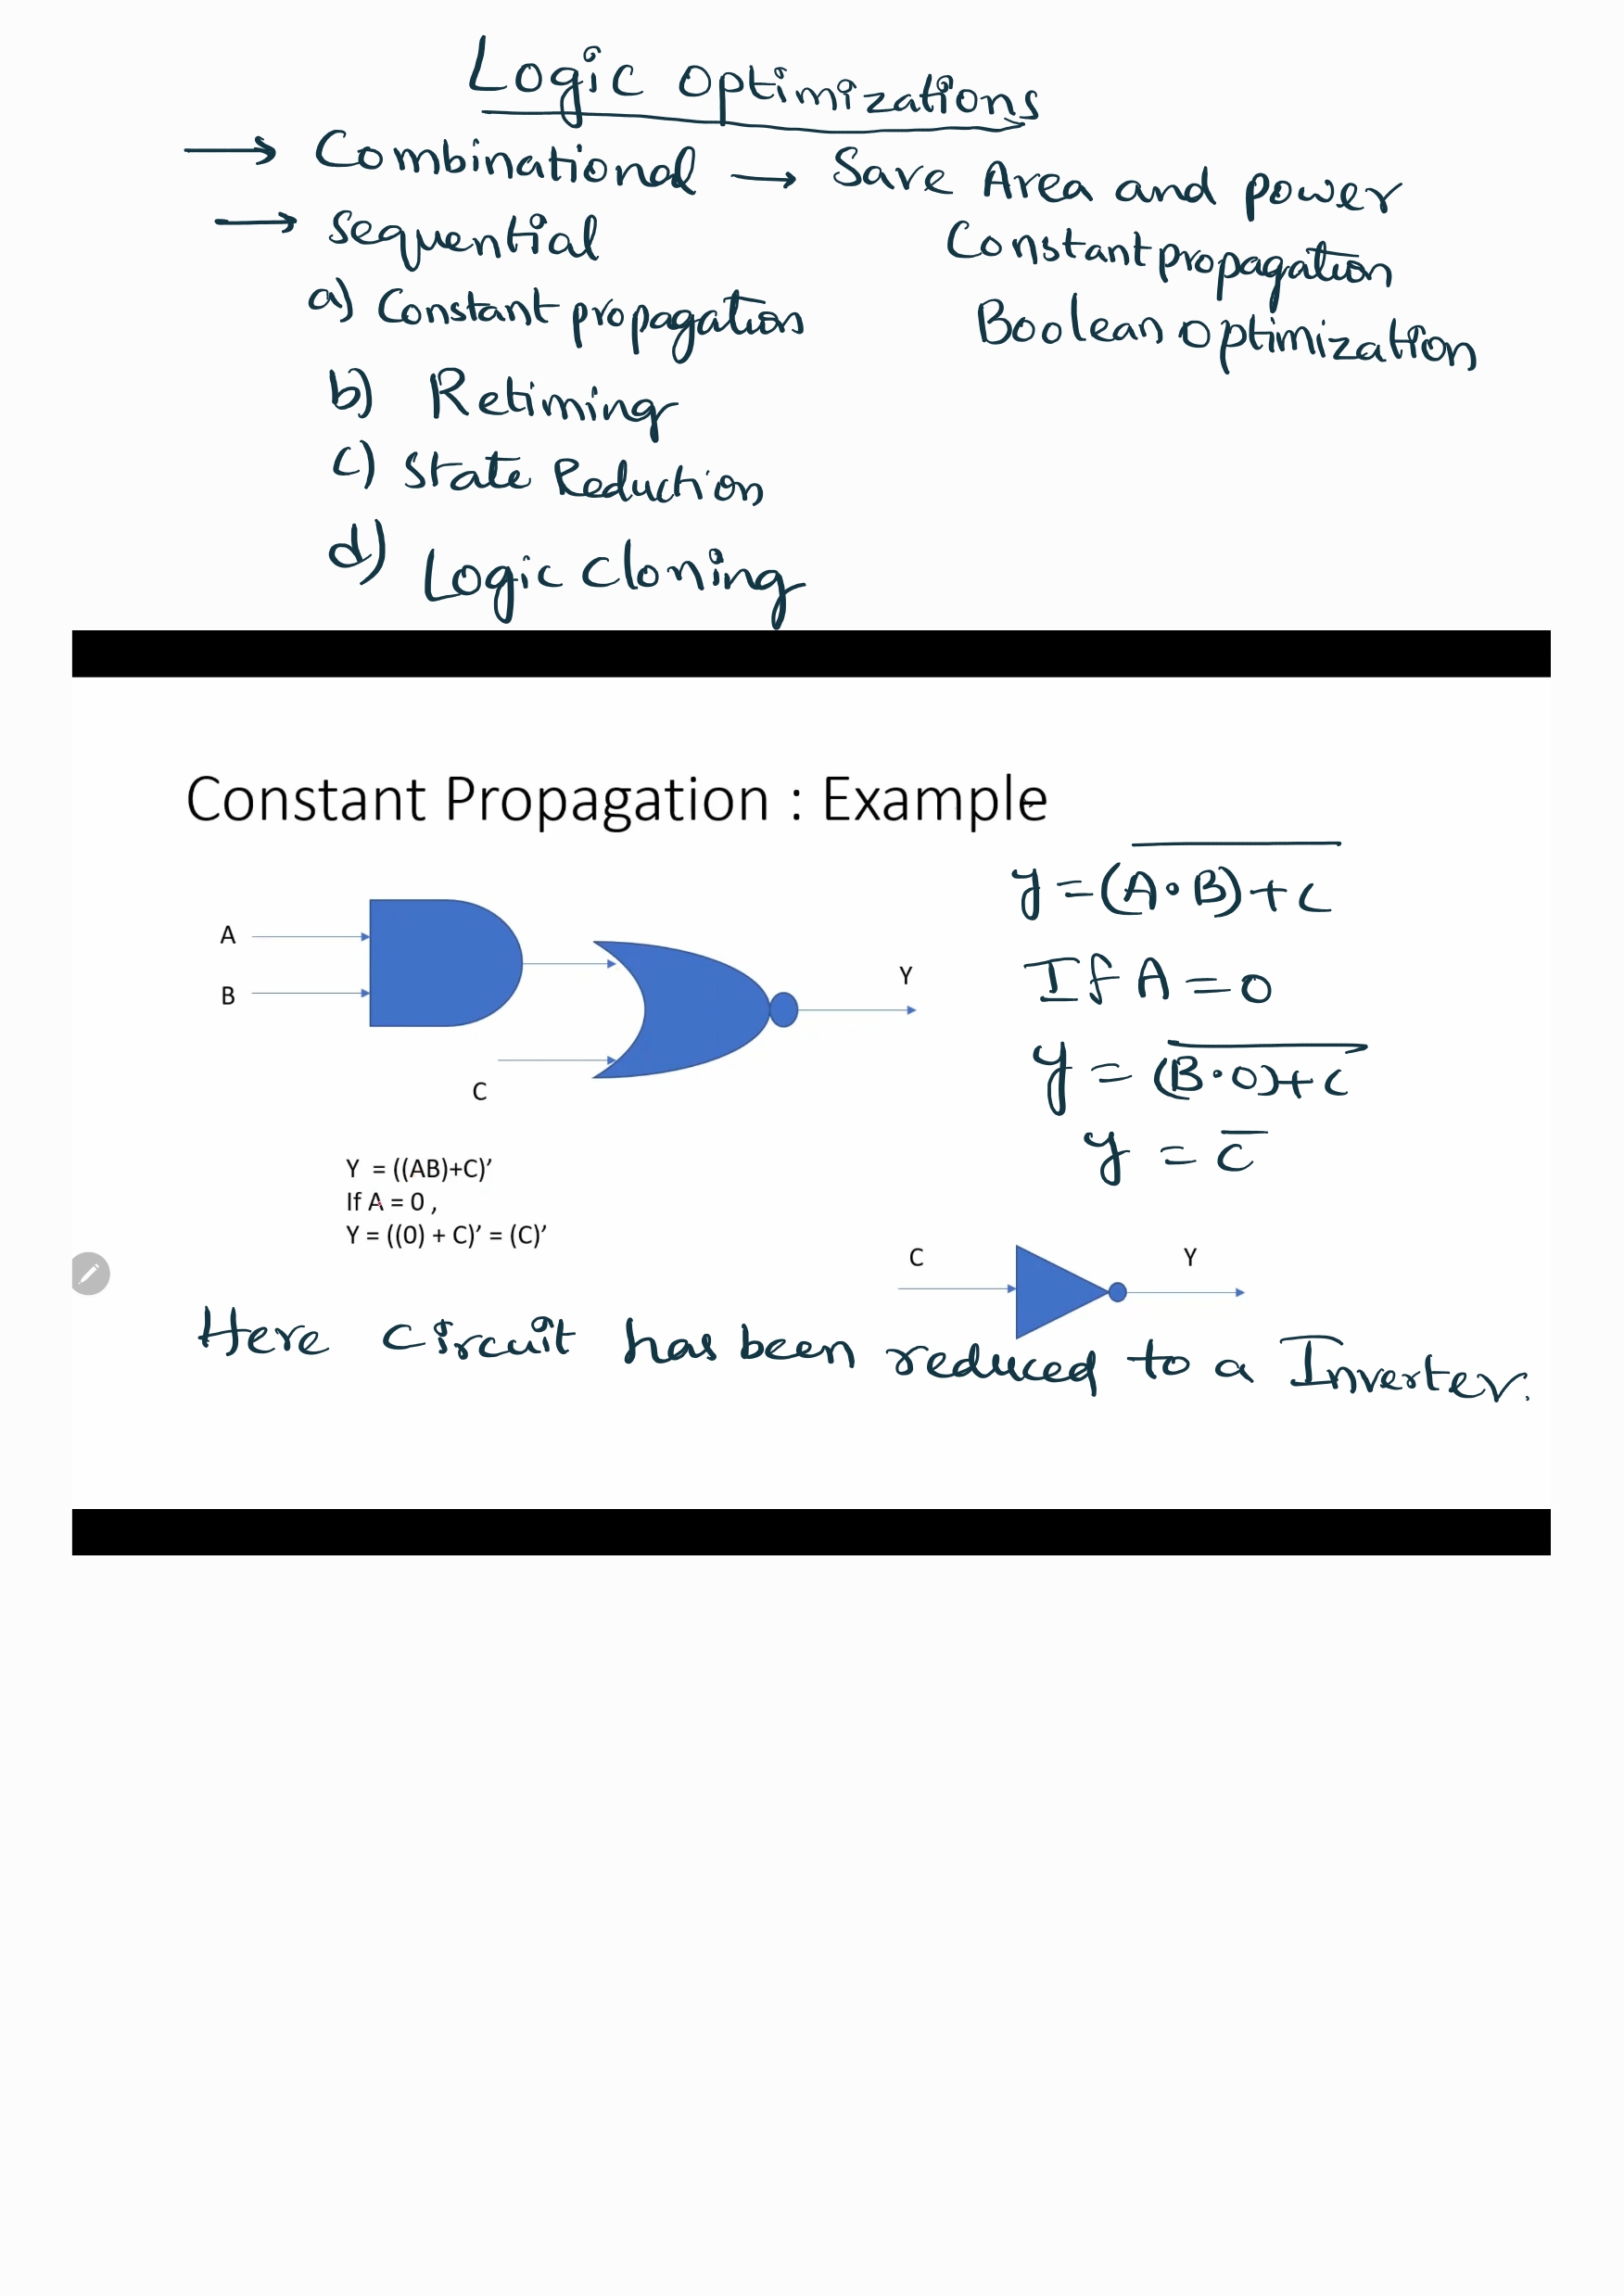 Logic Optimizations
→ Combinational → Save Area and power
→ Sequential
Constant propagation
a) Constant propagation
Boolean Optimization
b) Retiming
c) State Reduction
d) Logic Cloning
Constant Propagation : Example
y = \overline{(A·B)+C}
A
B
C
Y
If A = 0
y = \overline{(B·0)+C}
y = \overline{C}
Y = ((AB)+C)’
If A = 0 ,
Y = ((0) + C)’ = (C)’
C
Y
Here circuit has been reduced to a Inverter.